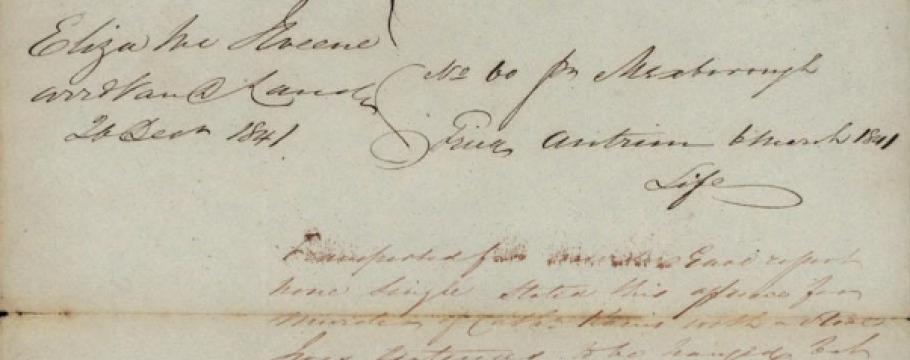 Eliza Mc Skeene
arrd Van D Land
26 Decr 1841
No 60 pr Mexborough
Tried Antrim 6 March 1841
Life
Transported for Gaol report
none Single Stated this offence for
Murder of Cathe with a
to be hanged